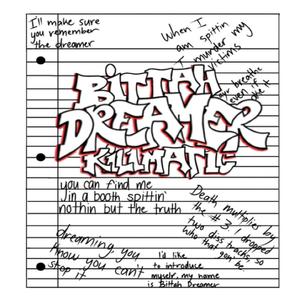 I'll make sure
you remember
the dreamer
When I
am spittin
I murder my
victims
breathe
even if
BITTAH
DREAMER
KILLMATIC
you can find me
in a booth spittin'
nothin but the truth
Death multiplies by
the #3, I dropped
two diss tracks, so
who that gon' be.
dreaming you
know you can't
stop it
I'd like
to introduce
myself, my name
is Bittah Dreamer